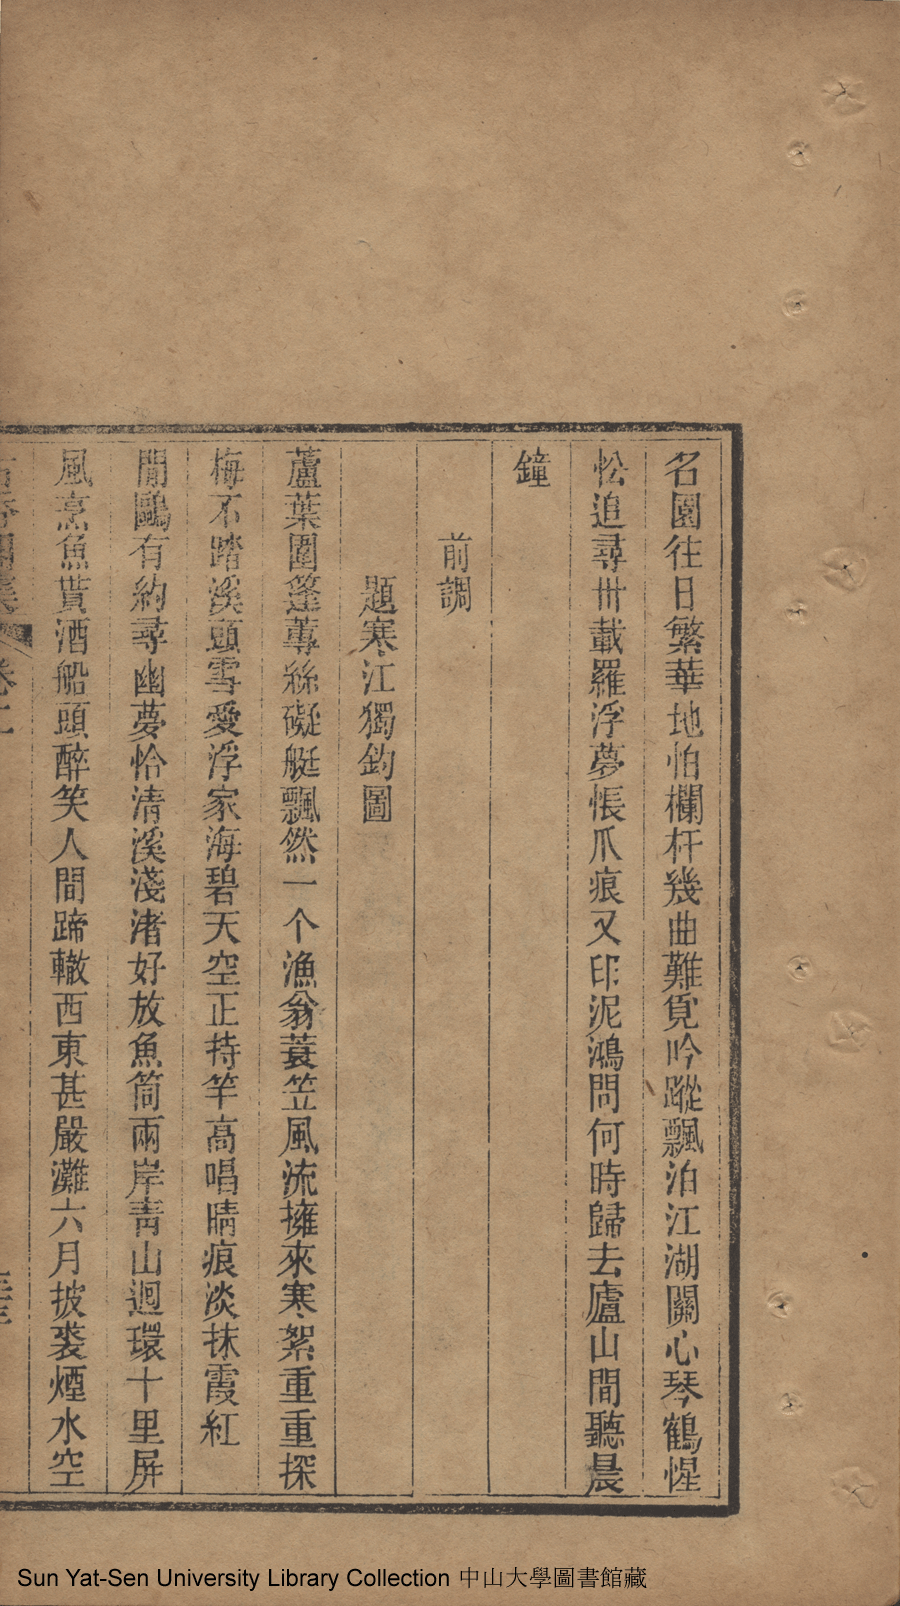 名園往日繁華地怕欄杆幾曲難覓吟蹤飄泊江湖關心琴鶴惺
忪追尋卅載羅浮夢悵爪痕又印泥鴻問何時歸去廬山閒聽晨
鐘
前調
題寒江獨釣圖
蘆葉圍篷蓴絲礙艇飄然一个漁翁蓑笠風流擁來寒絮重重探
梅不踏溪頭雪愛浮家海碧天空正持竿高唱晴痕淡抹霞紅
閒鷗有約尋幽夢恰清溪淺渚好放魚筒兩岸靑山迴環十里屏
風烹魚貰酒船頭醉笑人間蹄轍西東甚嚴灘六月披裘煙水空
卷二
Sun Yat-Sen University Library Collection 中山大學圖書館藏